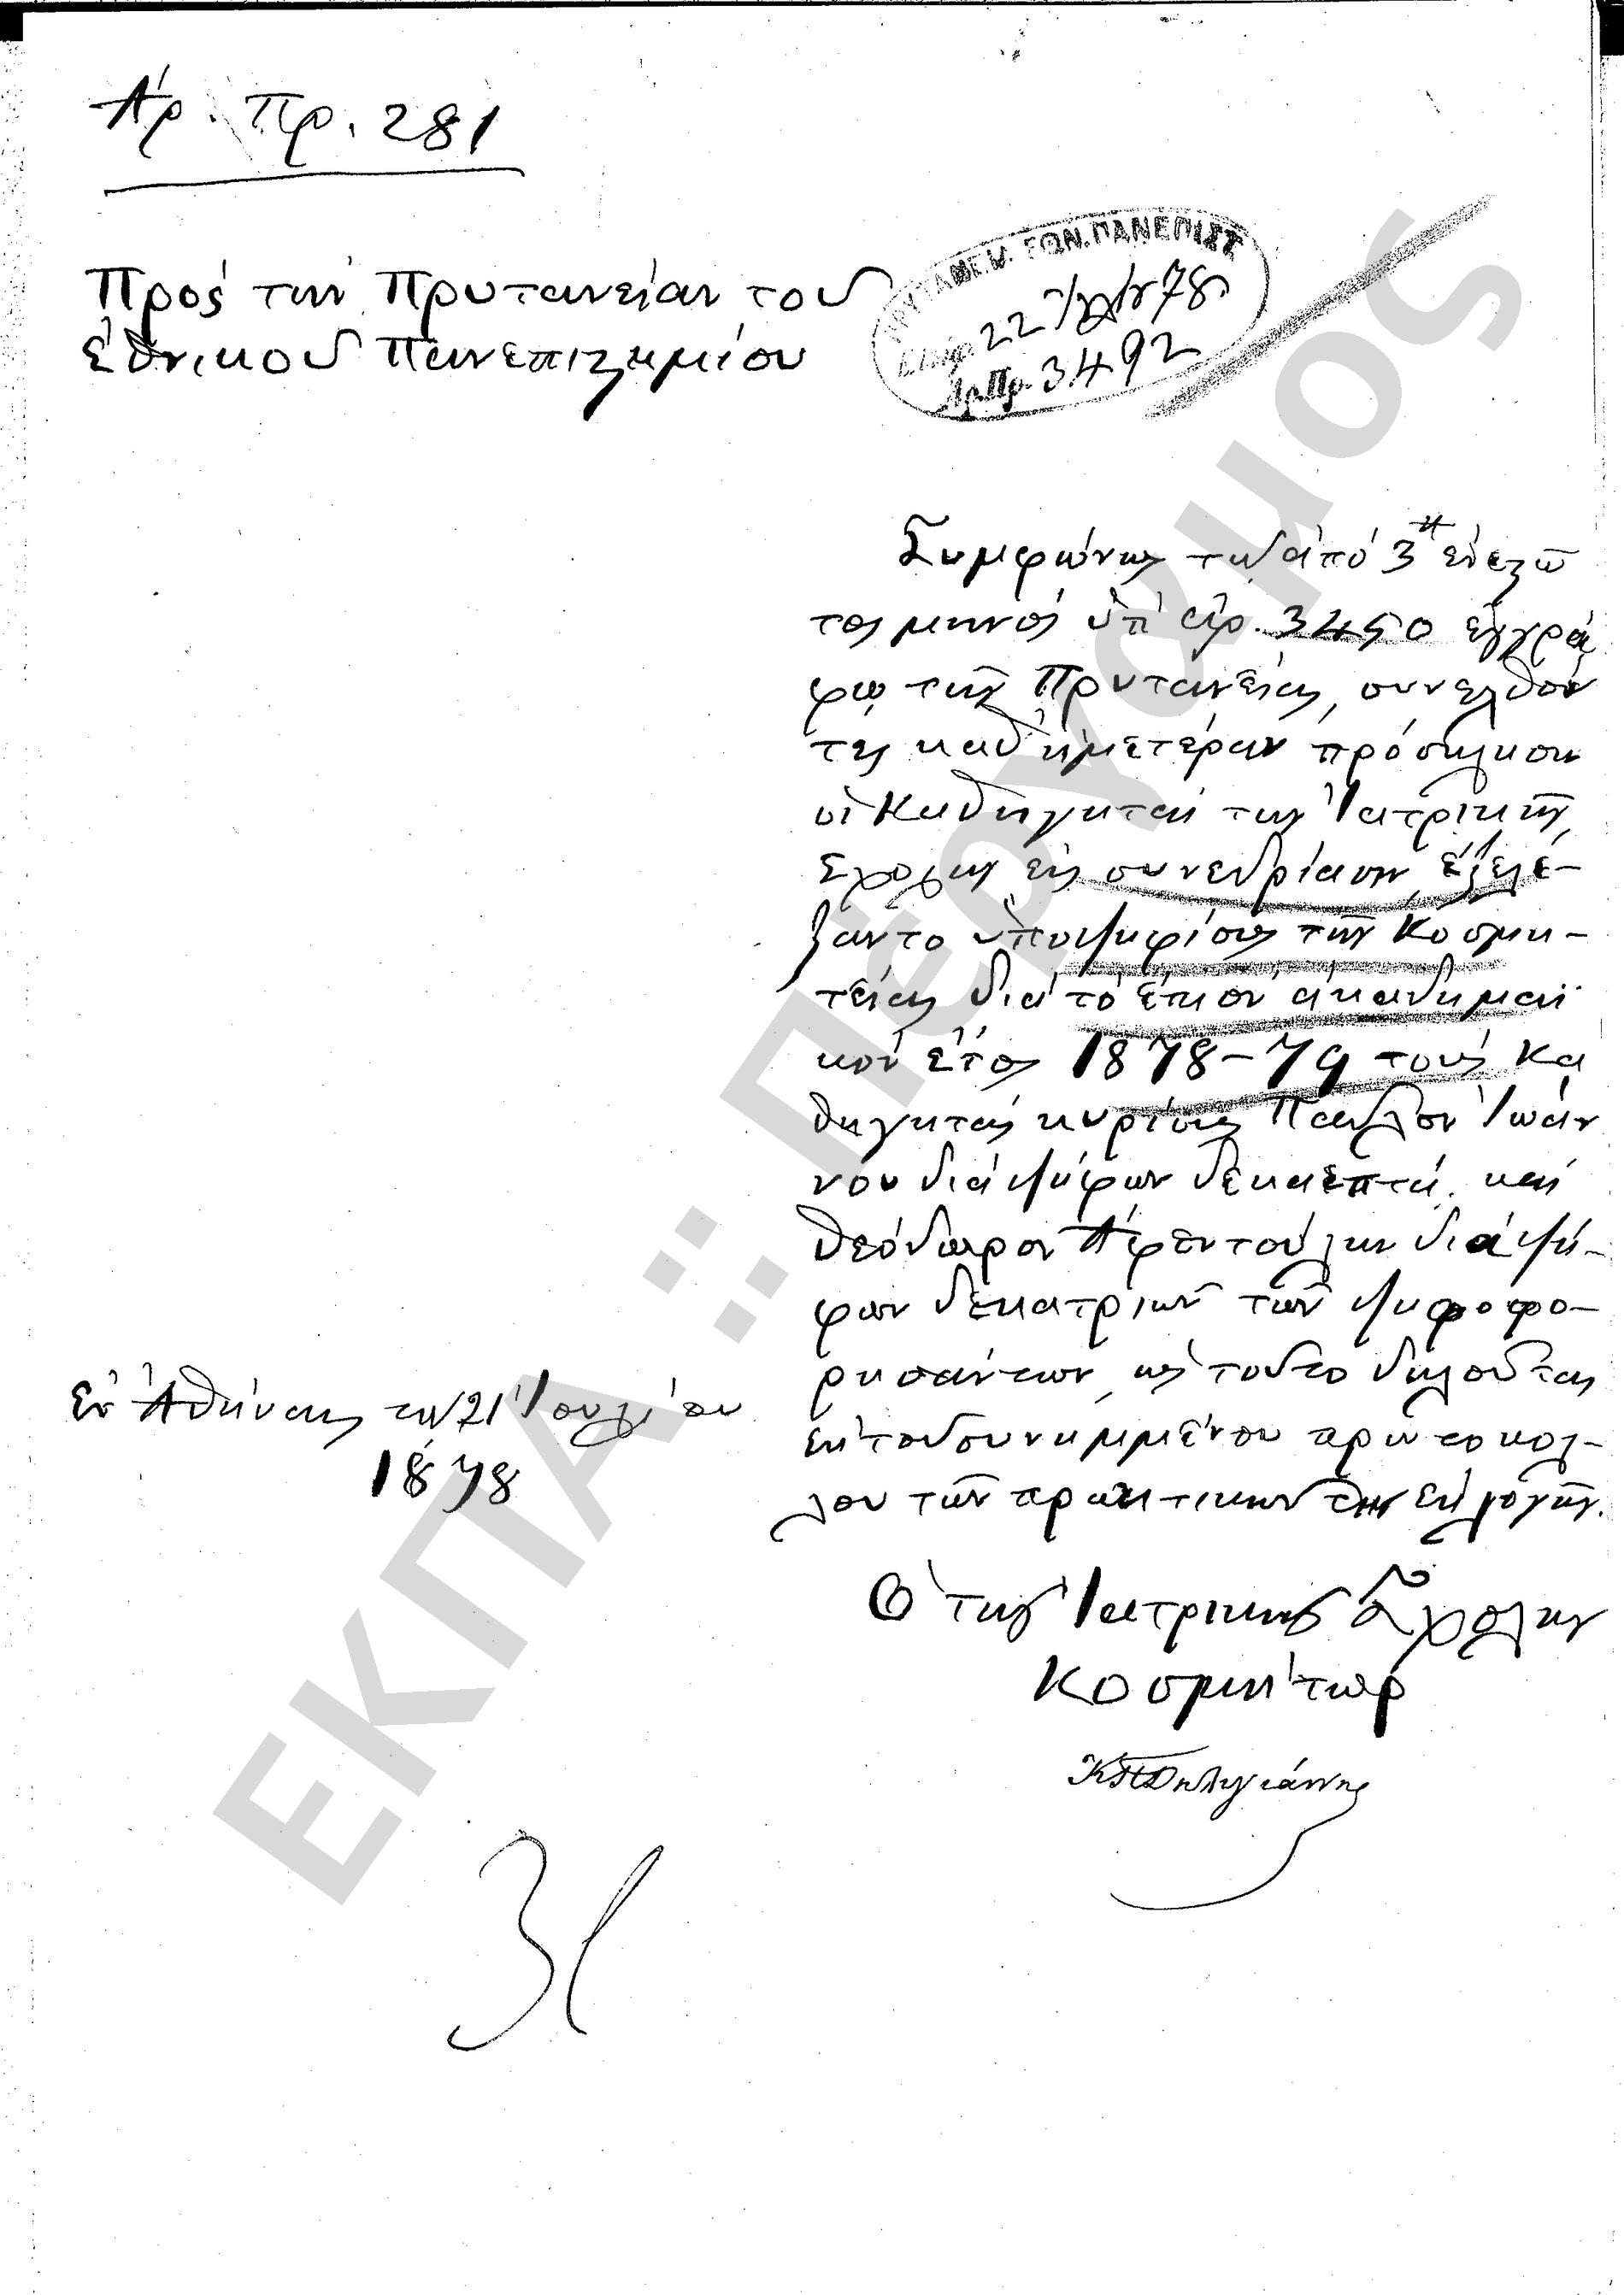 Ἀρ. Πρ. 281
Πρὸς τὴν Πρυτανείαν τοῦ
Ἐθνικοῦ Πανεπιστημίου
ΠΡΥΤΑΝΕΙΑ ΕΘΝ. ΠΑΝΕΠΙΣΤ
22 78
Ἀρ.Πρ. 3492
Συμφώνως τῷ ἀπὸ 3η ἐνεστῶ
τος μηνὸς ὑπ' ἀρ. 3450 ἐγγρά
φῳ τῆς Πρυτανείας, συνελθόν
τες καθ' ἡμετέραν πρόσκλησιν
οἱ Καθηγηταὶ τῆς Ἰατρικῆς
Σχολῆς εἰς συνεδρίασιν, ἐξελέ-
ξαντο ὑποψηφίους τῆς Κοσμη-
τείας διὰ τὸ ἐπιὸν ἀκαδημαϊ
κὸν ἔτος 1878-79 τοὺς Κα
θηγητὰς κυρίους Παῦλον Ἰωάν
νου διὰ ψήφων δεκαεπτὰ, καὶ
Θεόδωρον Ἀφεντούλην διὰ ψή-
φων δεκατριῶν τῶν ψηφοφο-
ρησάντων, ὡς τοῦτο δηλοῦται
ἐκ τοῦ συνημμένου πρωτοκόλ-
λου τῶν πρακτικῶν τῆς ἐκλογῆς.
Ἐν Ἀθήναις τῇ 21 Ἰουλίου
1878
Ὁ τῆς Ἰατρικῆς Σχολῆς
Κοσμήτωρ
ΚΠΔηλιγιάννης
ΕΚΠΑ :: Πέργαμος